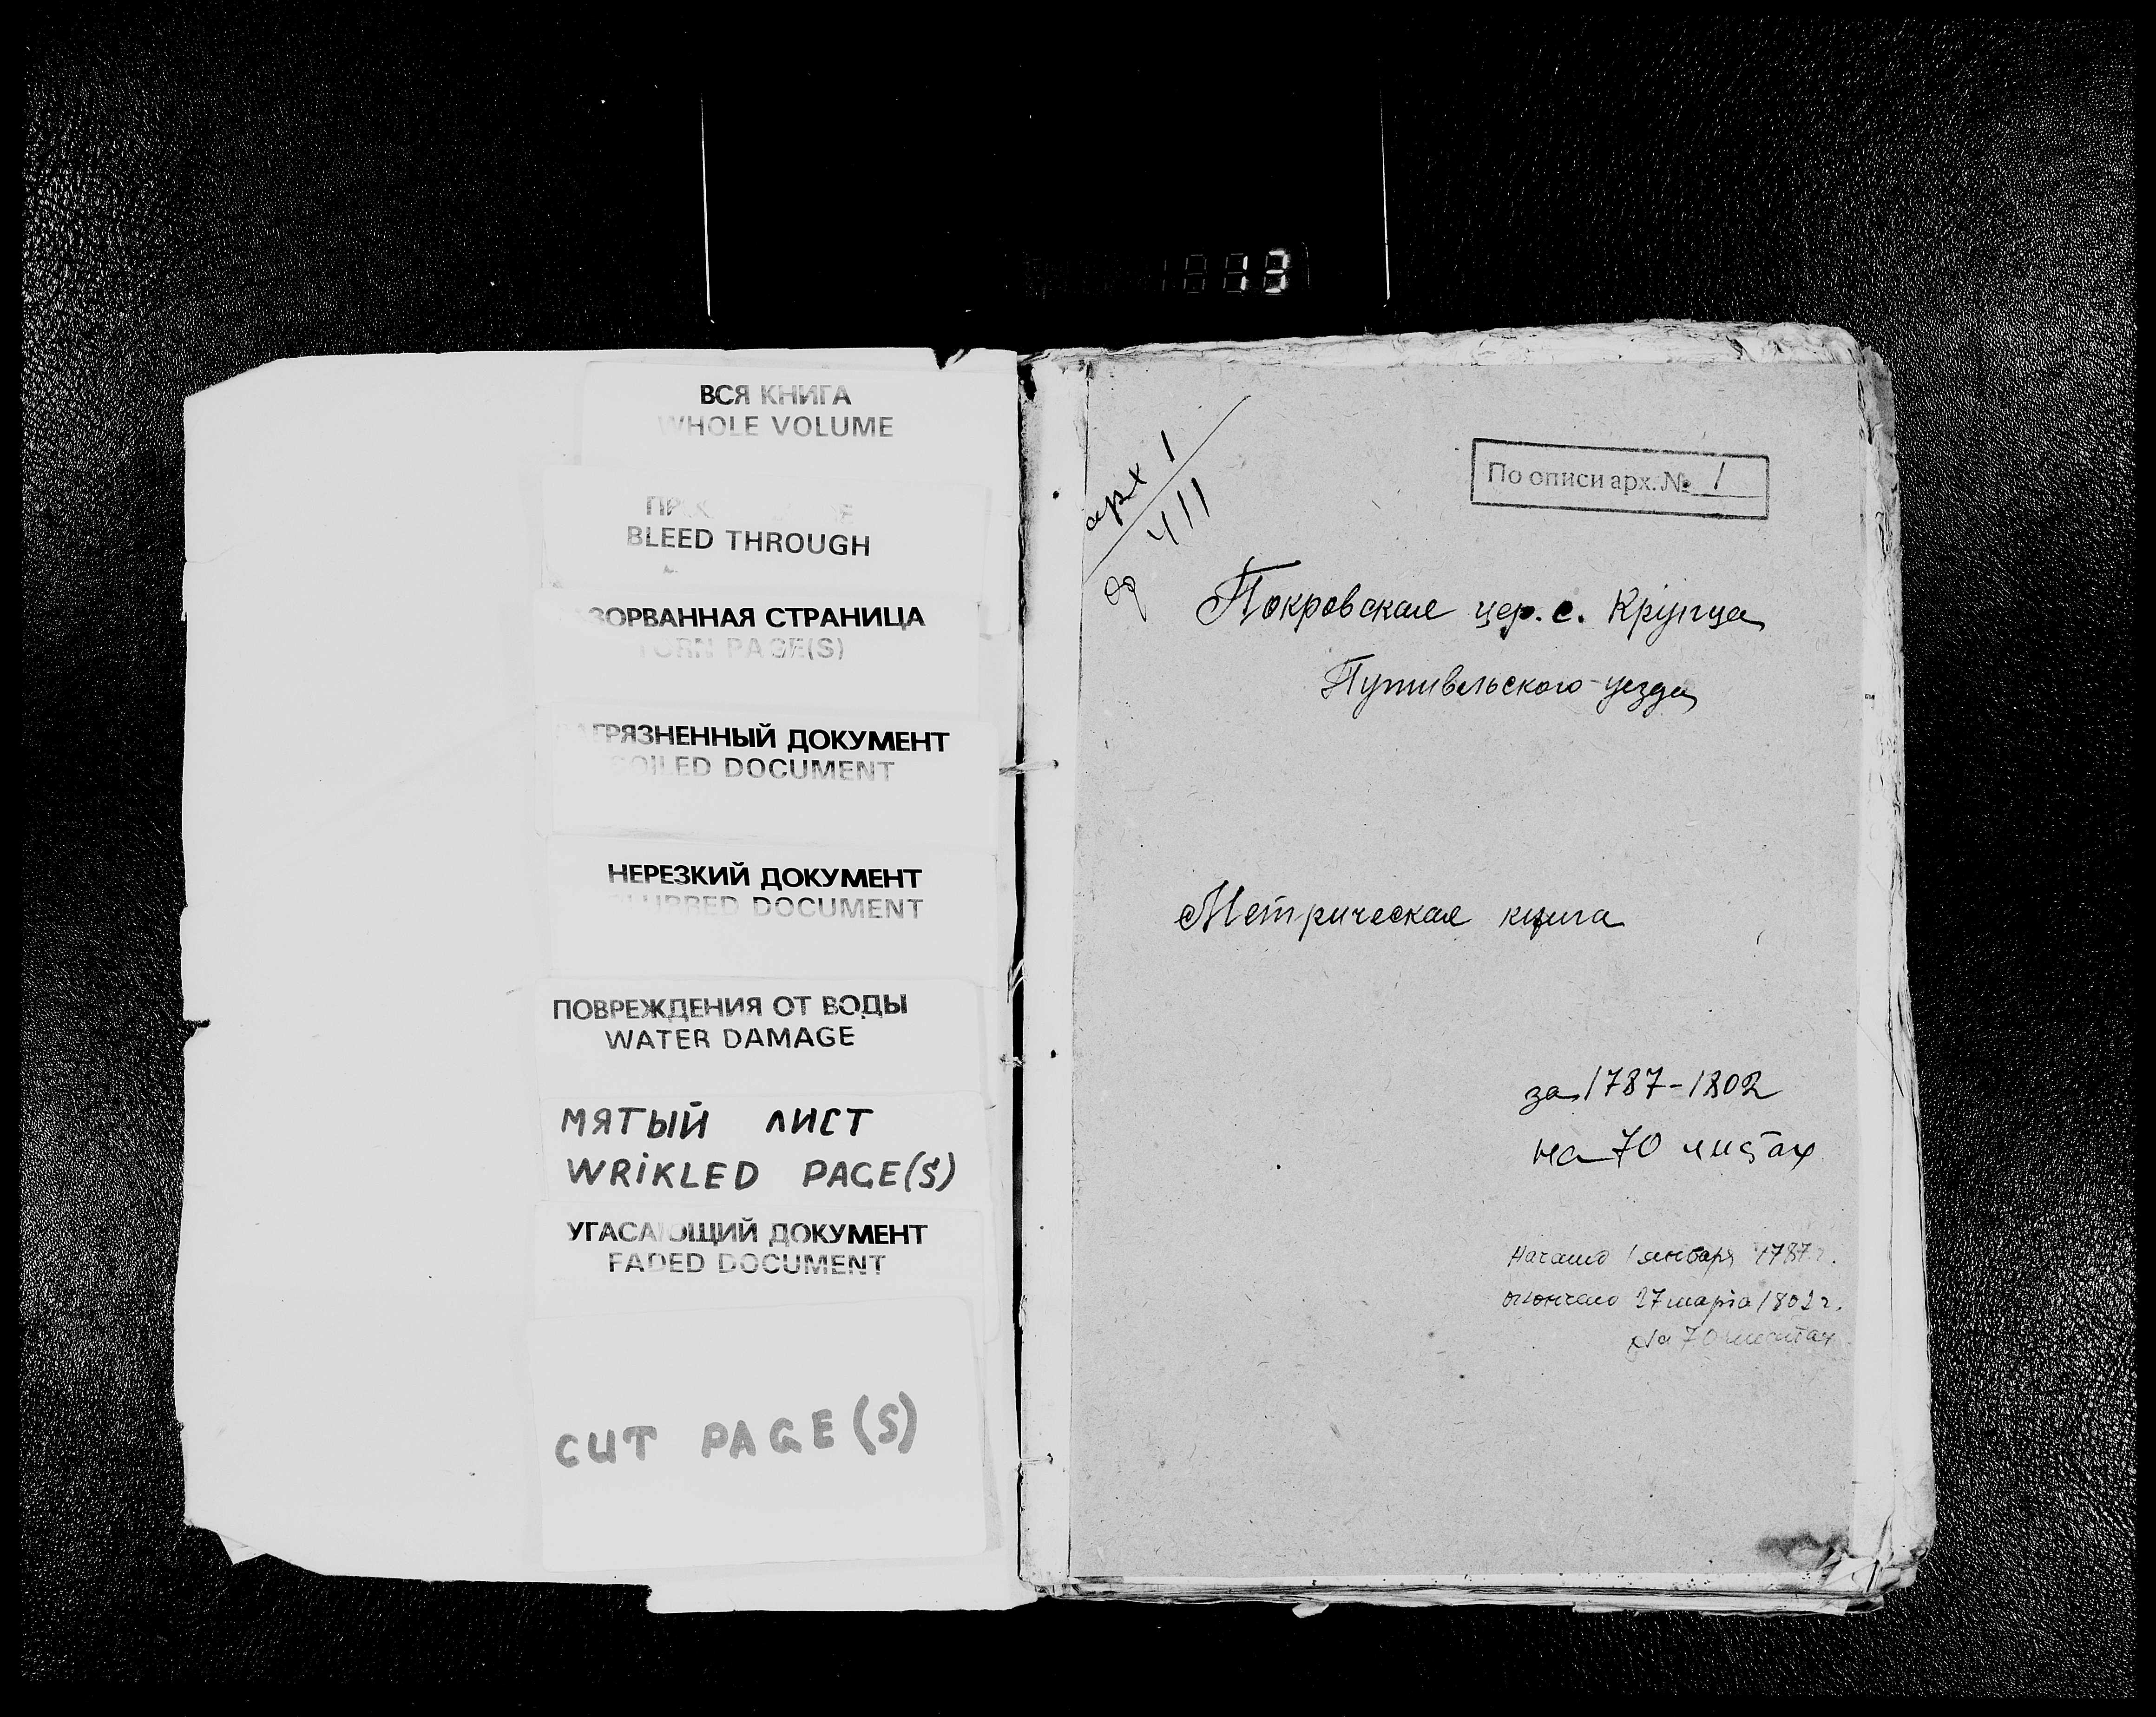 13
ВСЯ КНИГА
WHOLE VOLUME
BLEED THROUGH
ЗОРВАННАЯ СТРАНИЦА
TORN PAGE(S)
ГРЯЗНЕННЫЙ ДОКУМЕНТ
SOILED DOCUMENT
НЕРЕЗКИЙ ДОКУМЕНТ
BLURRED DOCUMENT
ПОВРЕЖДЕНИЯ ОТ ВОДЫ
WATER DAMAGE
МЯТЫЙ ЛИСТ
WRIKLED PAGE(S)
УГАСАЮЩИЙ ДОКУМЕНТ
FADED DOCUMENT
CUT PAGE(S)
арх 1
411
По описи арх. № 1
Покровская цер. с. Крупца
Путивльского уезда
Метрическая книга
за 1787-1802
на 70 листах
Начато 1 января 1787 г.
окончено 27 марта 1802 г.
На 70 листах